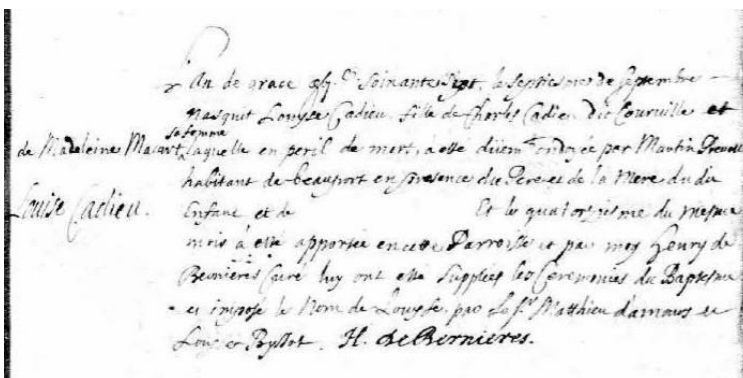 L'An de grace Soixante Sept, le septiesme de Septembre
nasquit Louyse Cadieu, fille de Charles Cadieu dit Courville et
de Madeleine Macart, sa femme Laquelle en peril de mort, à esté ondoyée par Martin Prevost
habitant de beauport en presence du Pere et de la Mere du du
Louise Cadieu. Enfant et de Et le quatorziesme du mesme
mois à esté apportée en cette Parroisse et par moy Henry de
Bernieres Curé luy ont esté supplées les Ceremonies du Baptesme
et imposé le Nom de Louyse par Le Sr. Matthieu damours et
H. de Bernieres.